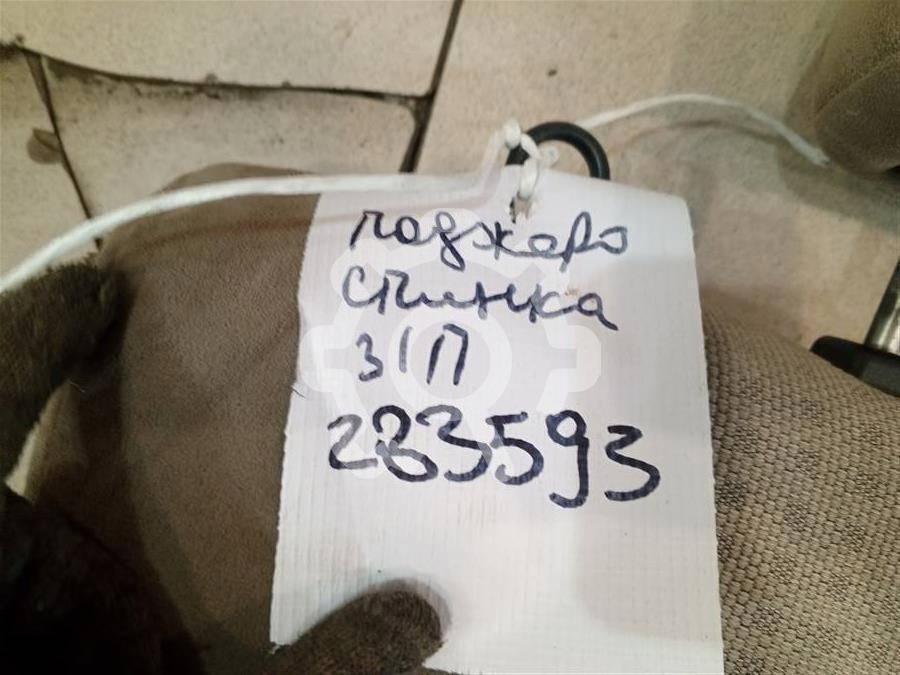 паджеро
спинка
З/П
283593